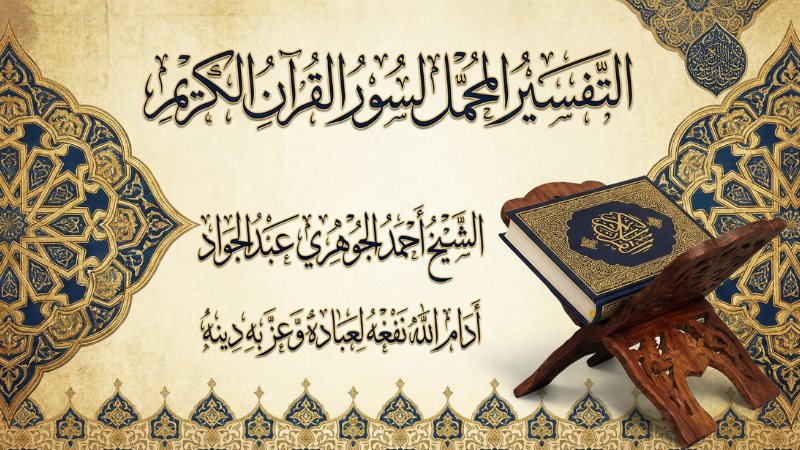 التَّفْسَيْرُ المُجْمَل لسُوَرُ القُرآنِ الكَرِيْمِ
الشَّيْخُ أَحْمَدُ الجُوْهَرِي عَبْدُ الجَوَاد
أَدَام اللَّهُ نَفْعَهُ لِعِبَادَهْ وَّعَزَّ بِهِ دِينَهُ